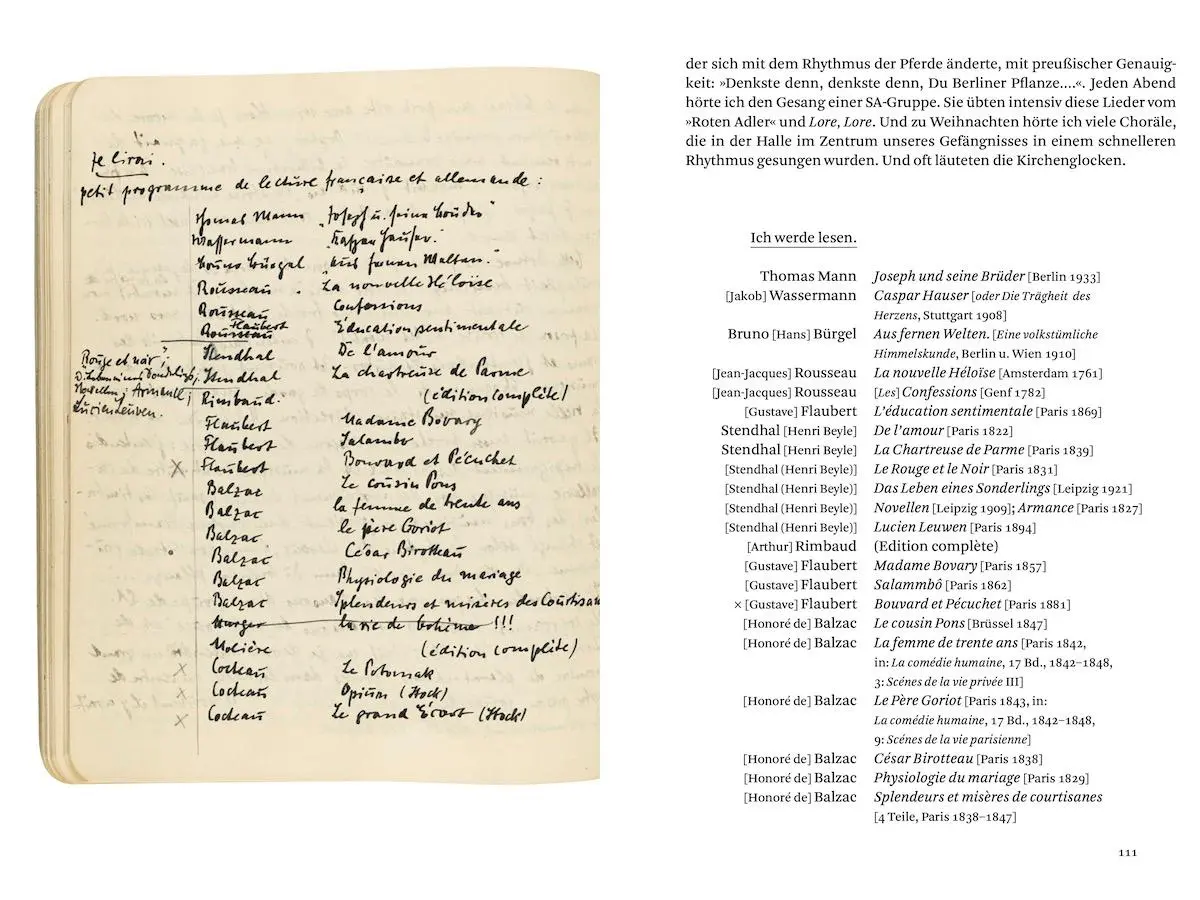 Je lirai.
petit programme de lecture française et allemande :
Thomas Mann "Josef u. seine Brüder"
Wassermann "Kaspar Hauser."
Bruno Bürgel "Aus fernen Welten."
Rousseau. La nouvelle Héloïse
Rousseau Confessions
Rousseau Flaubert Éducation sentimentale
Stendhal De l'amour
Rouge et noir ;
D. Leben eines Sonderlings ;
Novellen ; Armance ;
Lucien Leuwen.
Stendhal La chartreuse de Parme
Rimbaud. (édition complète)
Flaubert Madame Bovary
Flaubert Salambo
x Flaubert Bouvard et Pécuchet
Balzac Le cousin Pons
Balzac la femme de trente ans
Balzac le père Goriot
Balzac César Birotteau
Balzac Physiologie du mariage
Balzac Splendeurs et misères des Courtisanes
Murger la vie de bohème !!!
Molière (édition complète)
x Cocteau Le Potomak
x Cocteau Opium (Stock)
x Cocteau Le grand Écart (Stock)
der sich mit dem Rhythmus der Pferde änderte, mit preußischer Genauig-
keit: »Denkste denn, denkste denn, Du Berliner Pflanze....«. Jeden Abend
hörte ich den Gesang einer SA-Gruppe. Sie übten intensiv diese Lieder vom
»Roten Adler« und Lore, Lore. Und zu Weihnachten hörte ich viele Choräle,
die in der Halle im Zentrum unseres Gefängnisses in einem schnelleren
Rhythmus gesungen wurden. Und oft läuteten die Kirchenglocken.
Ich werde lesen.
Thomas Mann Joseph und seine Brüder [Berlin 1933]
[Jakob] Wassermann Caspar Hauser [oder Die Trägheit des
Herzens, Stuttgart 1908]
Bruno [Hans] Bürgel Aus fernen Welten. [Eine volkstümliche
Himmelskunde, Berlin u. Wien 1910]
[Jean-Jacques] Rousseau La nouvelle Héloïse [Amsterdam 1761]
[Jean-Jacques] Rousseau [Les] Confessions [Genf 1782]
[Gustave] Flaubert L'éducation sentimentale [Paris 1869]
Stendhal [Henri Beyle] De l'amour [Paris 1822]
Stendhal [Henri Beyle] La Chartreuse de Parme [Paris 1839]
[Stendhal (Henri Beyle)] Le Rouge et le Noir [Paris 1831]
[Stendhal (Henri Beyle)] Das Leben eines Sonderlings [Leipzig 1921]
[Stendhal (Henri Beyle)] Novellen [Leipzig 1909]; Armance [Paris 1827]
[Stendhal (Henri Beyle)] Lucien Leuwen [Paris 1894]
[Arthur] Rimbaud (Edition complète)
[Gustave] Flaubert Madame Bovary [Paris 1857]
[Gustave] Flaubert Salammbô [Paris 1862]
× [Gustave] Flaubert Bouvard et Pécuchet [Paris 1881]
[Honoré de] Balzac Le cousin Pons [Brüssel 1847]
[Honoré de] Balzac La femme de trente ans [Paris 1842,
in: La comédie humaine, 17 Bd., 1842–1848,
3: Scénes de la vie privée III]
[Honoré de] Balzac Le Père Goriot [Paris 1843, in:
La comédie humaine, 17 Bd., 1842–1848,
9: Scénes de la vie parisienne]
[Honoré de] Balzac César Birotteau [Paris 1838]
[Honoré de] Balzac Physiologie du mariage [Paris 1829]
[Honoré de] Balzac Splendeurs et misères de courtisanes
[4 Teile, Paris 1838–1847]
111